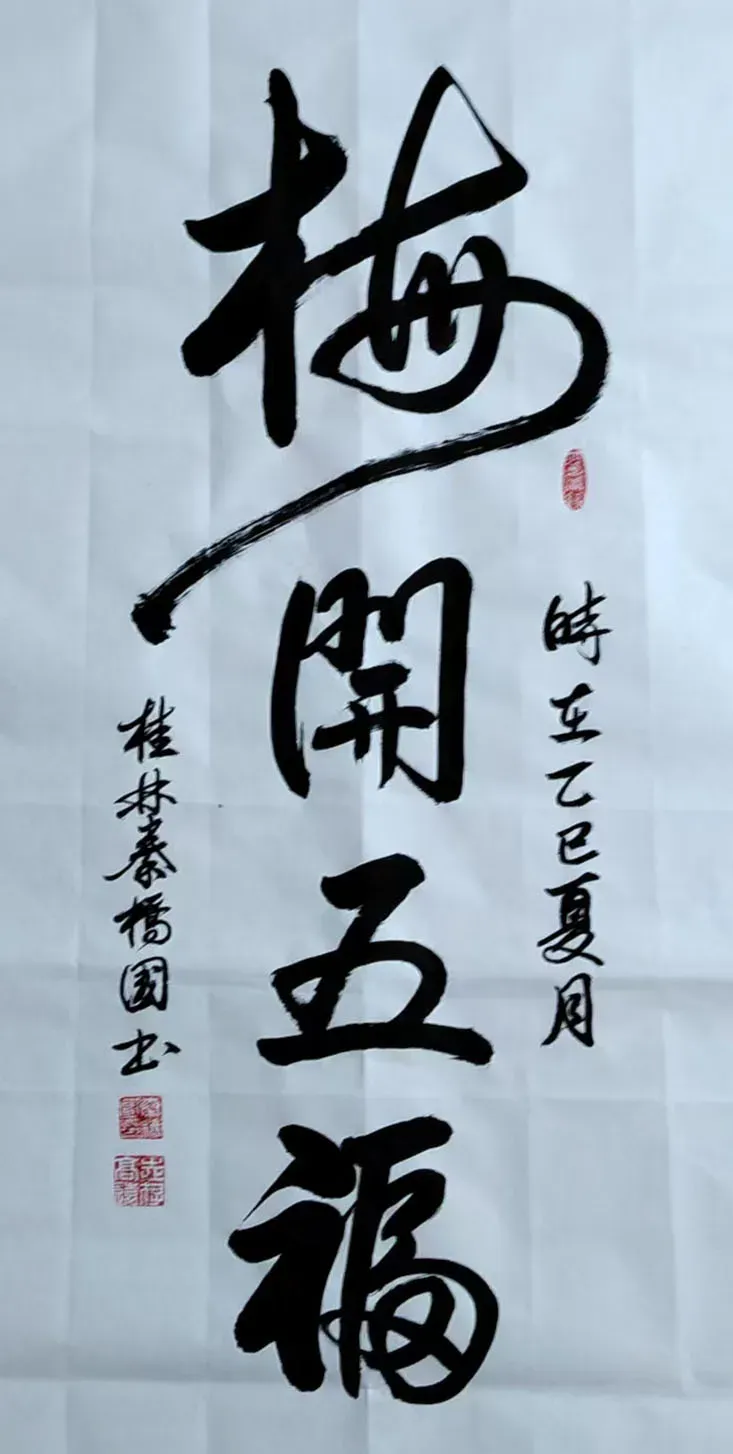 時在乙巳夏月
梅開五福
桂林秦橋國書